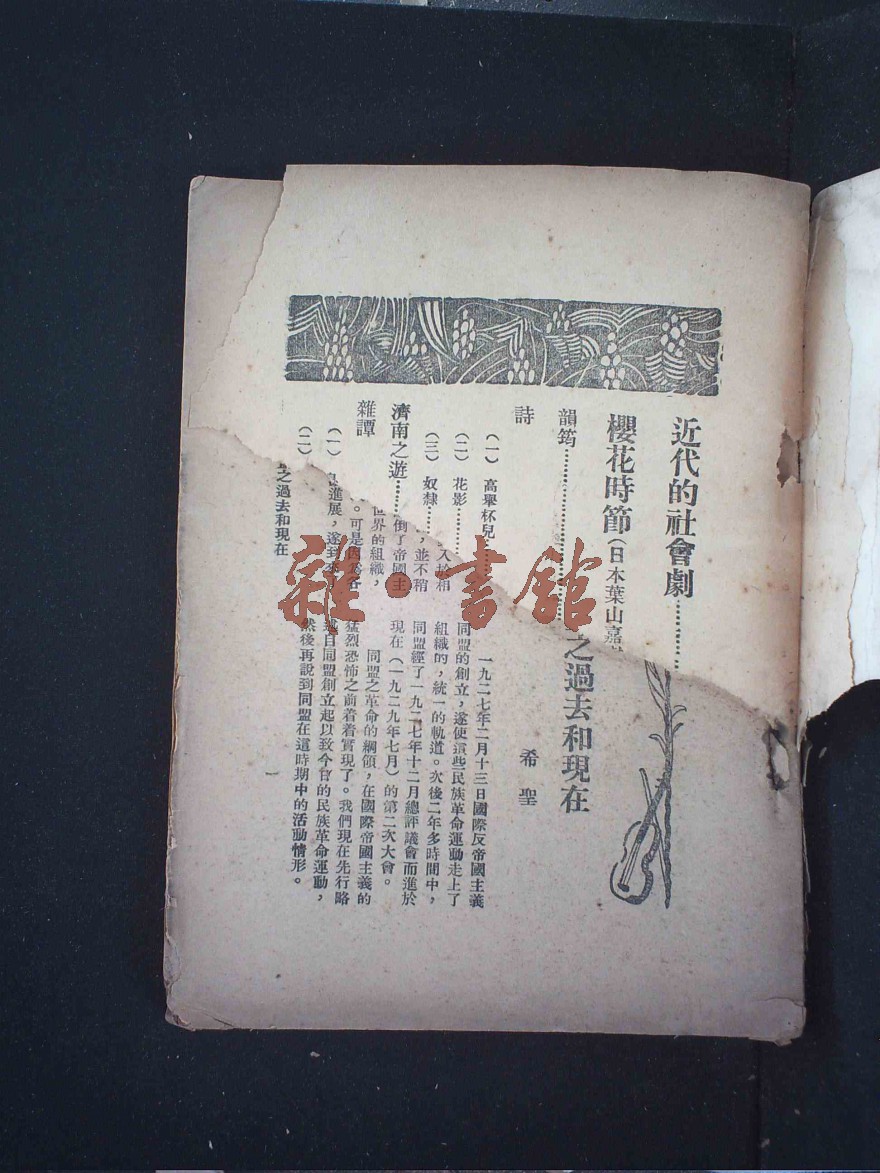 近代的社會劇……
櫻花時節(日本葉山嘉
韻筠……
詩
(一) 高舉杯兒……
(二) 花影……
(三) 奴隸……
濟南之遊……
雜譚
(一)
(二)
之過去和現在
希聖
一九二七年二月十三日國際反帝國主義
同盟的創立,遂使這些民族革命運動走上了
組織的,統一的軌道。次後二年多時間中,
同盟經了一九二七年十二月總評議會而進於
現在(一九二九年七月)的第二次大會。
同盟之革命的綱領,在國際帝國主義的
猛烈恐怖之前着着實現了。我們現在先行略
述自同盟創立起以致今日的民族革命運動,
然後再說到同盟在這時期中的活動情形。
入於相
,並不稍
倒了帝國主
世界的組織,
。可是因爲各
進展,遂到來了
之過去和現在
一
雜·書館